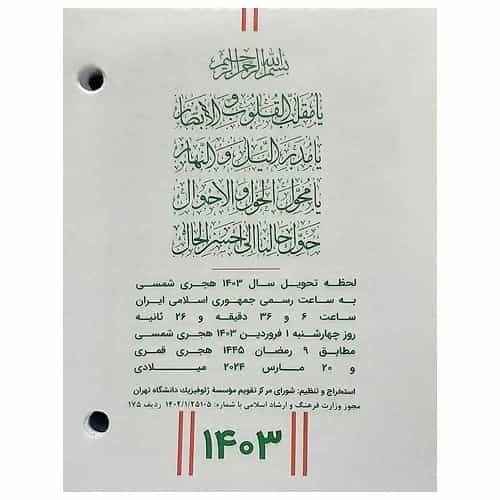 بسم الله الرحمن الرحیم
یا مقلب القلوب و الابصار
یا مدبر اللیل و النهار
یا محول الحول و الاحوال
حول حالنا الی احسن الحال
لحظه تحویل سال ۱۴۰۳ هجری شمسی
به ساعت رسمی جمهوری اسلامی ایران
ساعت ۶ و ۳۶ دقیقه و ۲۶ ثانیه
روز چهارشنبه ۱ فروردین ۱۴۰۳ هجری شمسی
مطابق ۹ رمضان ۱۴۴۵ هجری قمری
و ۲۰ مارس ۲۰۲۴ میلادی
استخراج و تنظیم: شورای مرکز تقویم مؤسسهٔ ژئوفیزیک دانشگاه تهران
مجوز وزارت فرهنگ و ارشاد اسلامی با شماره: ۱۴۰۲/۱/۲۵۱۰۵ ردیف ۱۷۵
۱۴۰۳